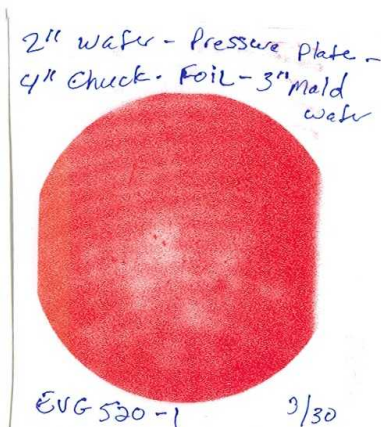 2" wafer - Pressure Plate -
4" Chuck. Foil - 3" Mold
wafer
EVG 520-1 3/30